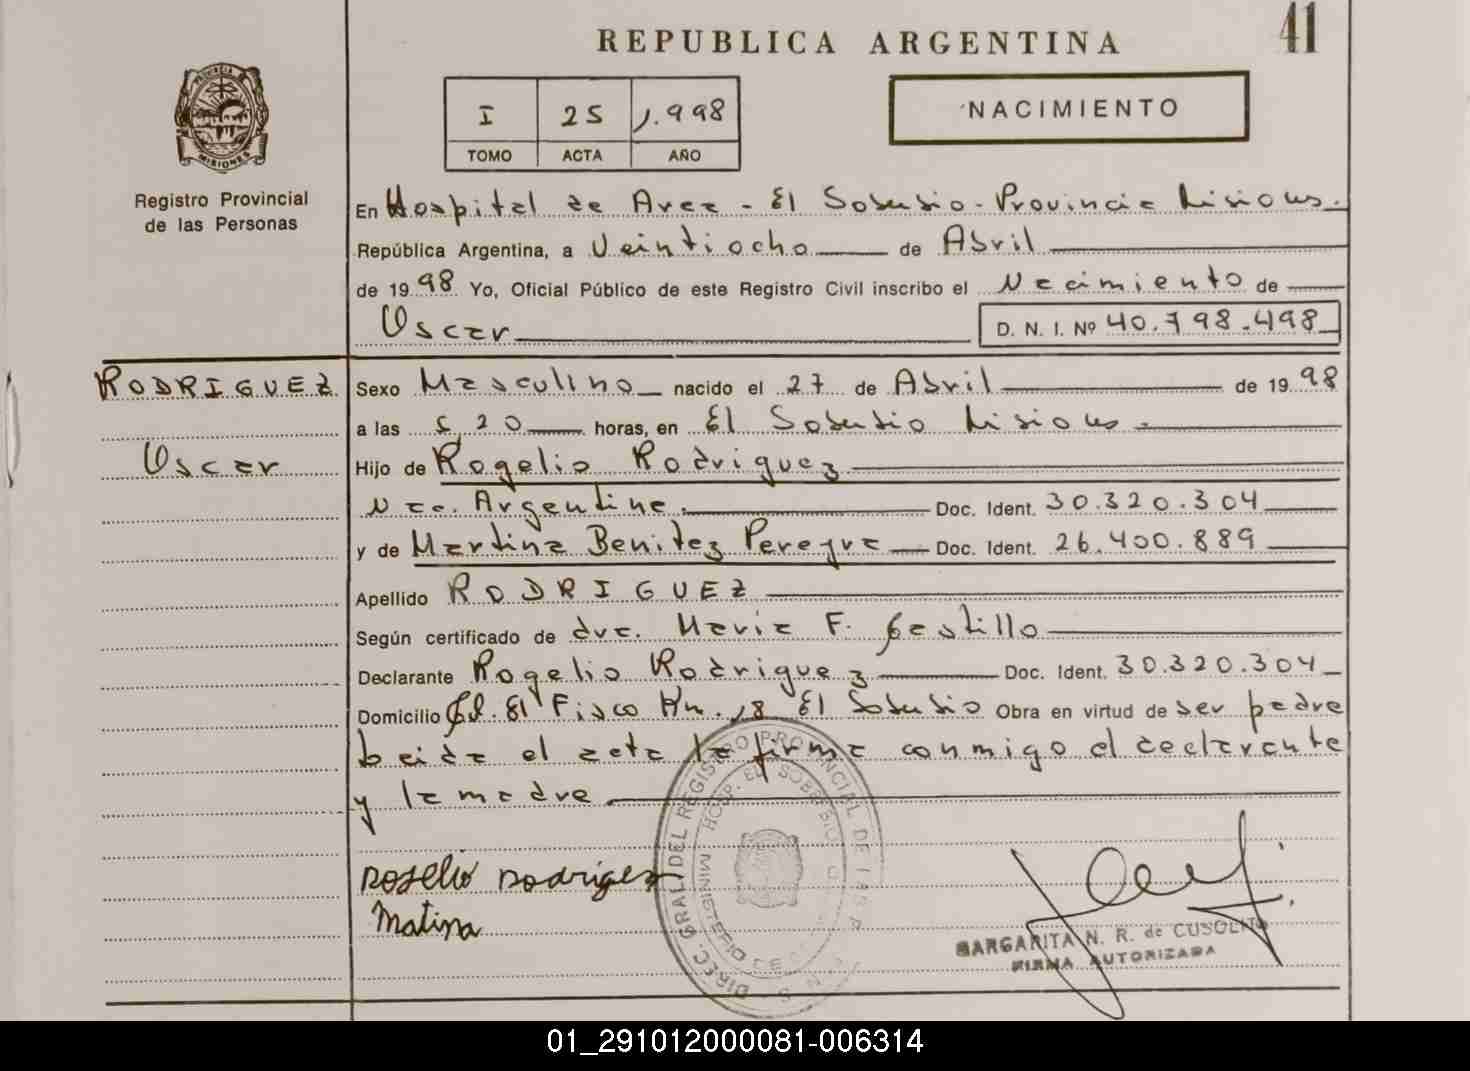 41
REPUBLICA ARGENTINA
I 25 1.998
TOMO ACTA AÑO
NACIMIENTO
PROVINCIA DE
MISIONES
Registro Provincial
de las Personas
En Hospital de Area - El Soberbio - Provincia Misiones.
República Argentina, a Veintiocho de Abril
de 1998 Yo, Oficial Público de este Registro Civil inscribo el Nacimiento de
Oscar D. N. I. Nº 40.798.498
RODRIGUEZ
Oscar
Sexo Masculino nacido el 27 de Abril de 1998
a las 5,20 horas, en El Soberbio Misiones.
Hijo de Rogelio Rodriguez
Nac. Argentina. Doc. Ident. 30.320.304
y de Martina Benitez Pereyra Doc. Ident. 26.400.889
Apellido RODRIGUEZ
Según certificado de dra. Maria F. Castillo
Declarante Rogelio Rodriguez Doc. Ident. 30.320.304
Domicilio Col. El Fisco Km. 18 El Soberbio Obra en virtud de ser padre
Leida el acta la firma conmigo el declarante
y la madre
DIREC. GRAL. DEL REGISTRO PROVINCIAL DE LAS P
HOSP. EL SOBERBIO
MINISTERIO DE
Roselio Rodrigez
Matina
MARGARITA N. R. de CUSOLITO
FIRMA AUTORIZADA
01_291012000081-006314